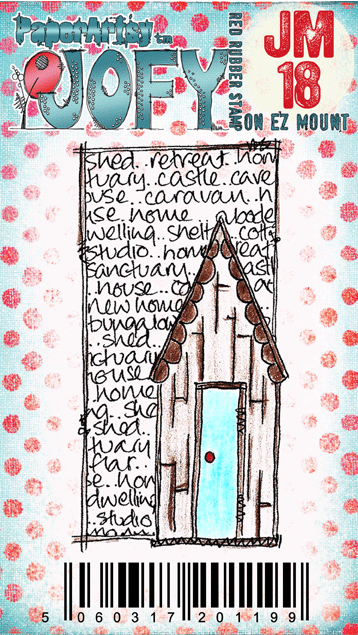 PaperArtsy tm
JOFY
RED RUBBER STAMP
JM
18
ON EZ MOUNT
shed..retreat..hom
tuary..castle..cave
ouse..caravan..h
use..home
welling..shelt cott
studio..hom reat
sanctuary.. ast
house..ca
new home
bungalow
..shed..
ctuary
house
home
ng..she
shed..
tuary
flat..
se..hom
dwelling
..studio
5 060317 201199